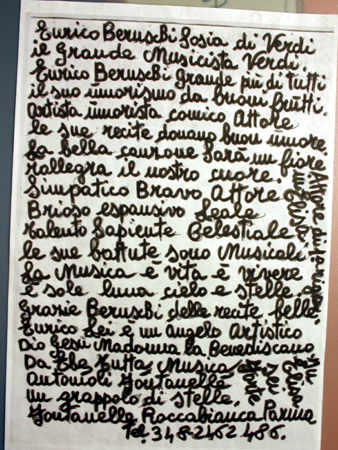 Enrico Beruschi Sosia di Verdi
il Grande Musicista Verdi.
Enrico Beruschi Grande più di tutti
il suo umorismo da buoni frutti.
Artista umorista comico Attore
le sue recite donano buon umore.
La bella canzone sarà un fiore
rallegra il nostro cuore.
Simpatico Bravo Attore
Brioso espansivo Leale
talento Sapiente Celestiale
le sue battute sono Musicali
La Musica è vita è vivere
è sole luna cielo e stelle
grazie Beruschi delle recite belle
Enrico Lei è un angelo Artistico
Dio Gesù Madonna la Benediscano
Da Ebe Tutta Musica
Antonioli Fontanelle
un grappolo di stelle.
Fontanelle Roccabianca Parma
Tel. 348-2462486.